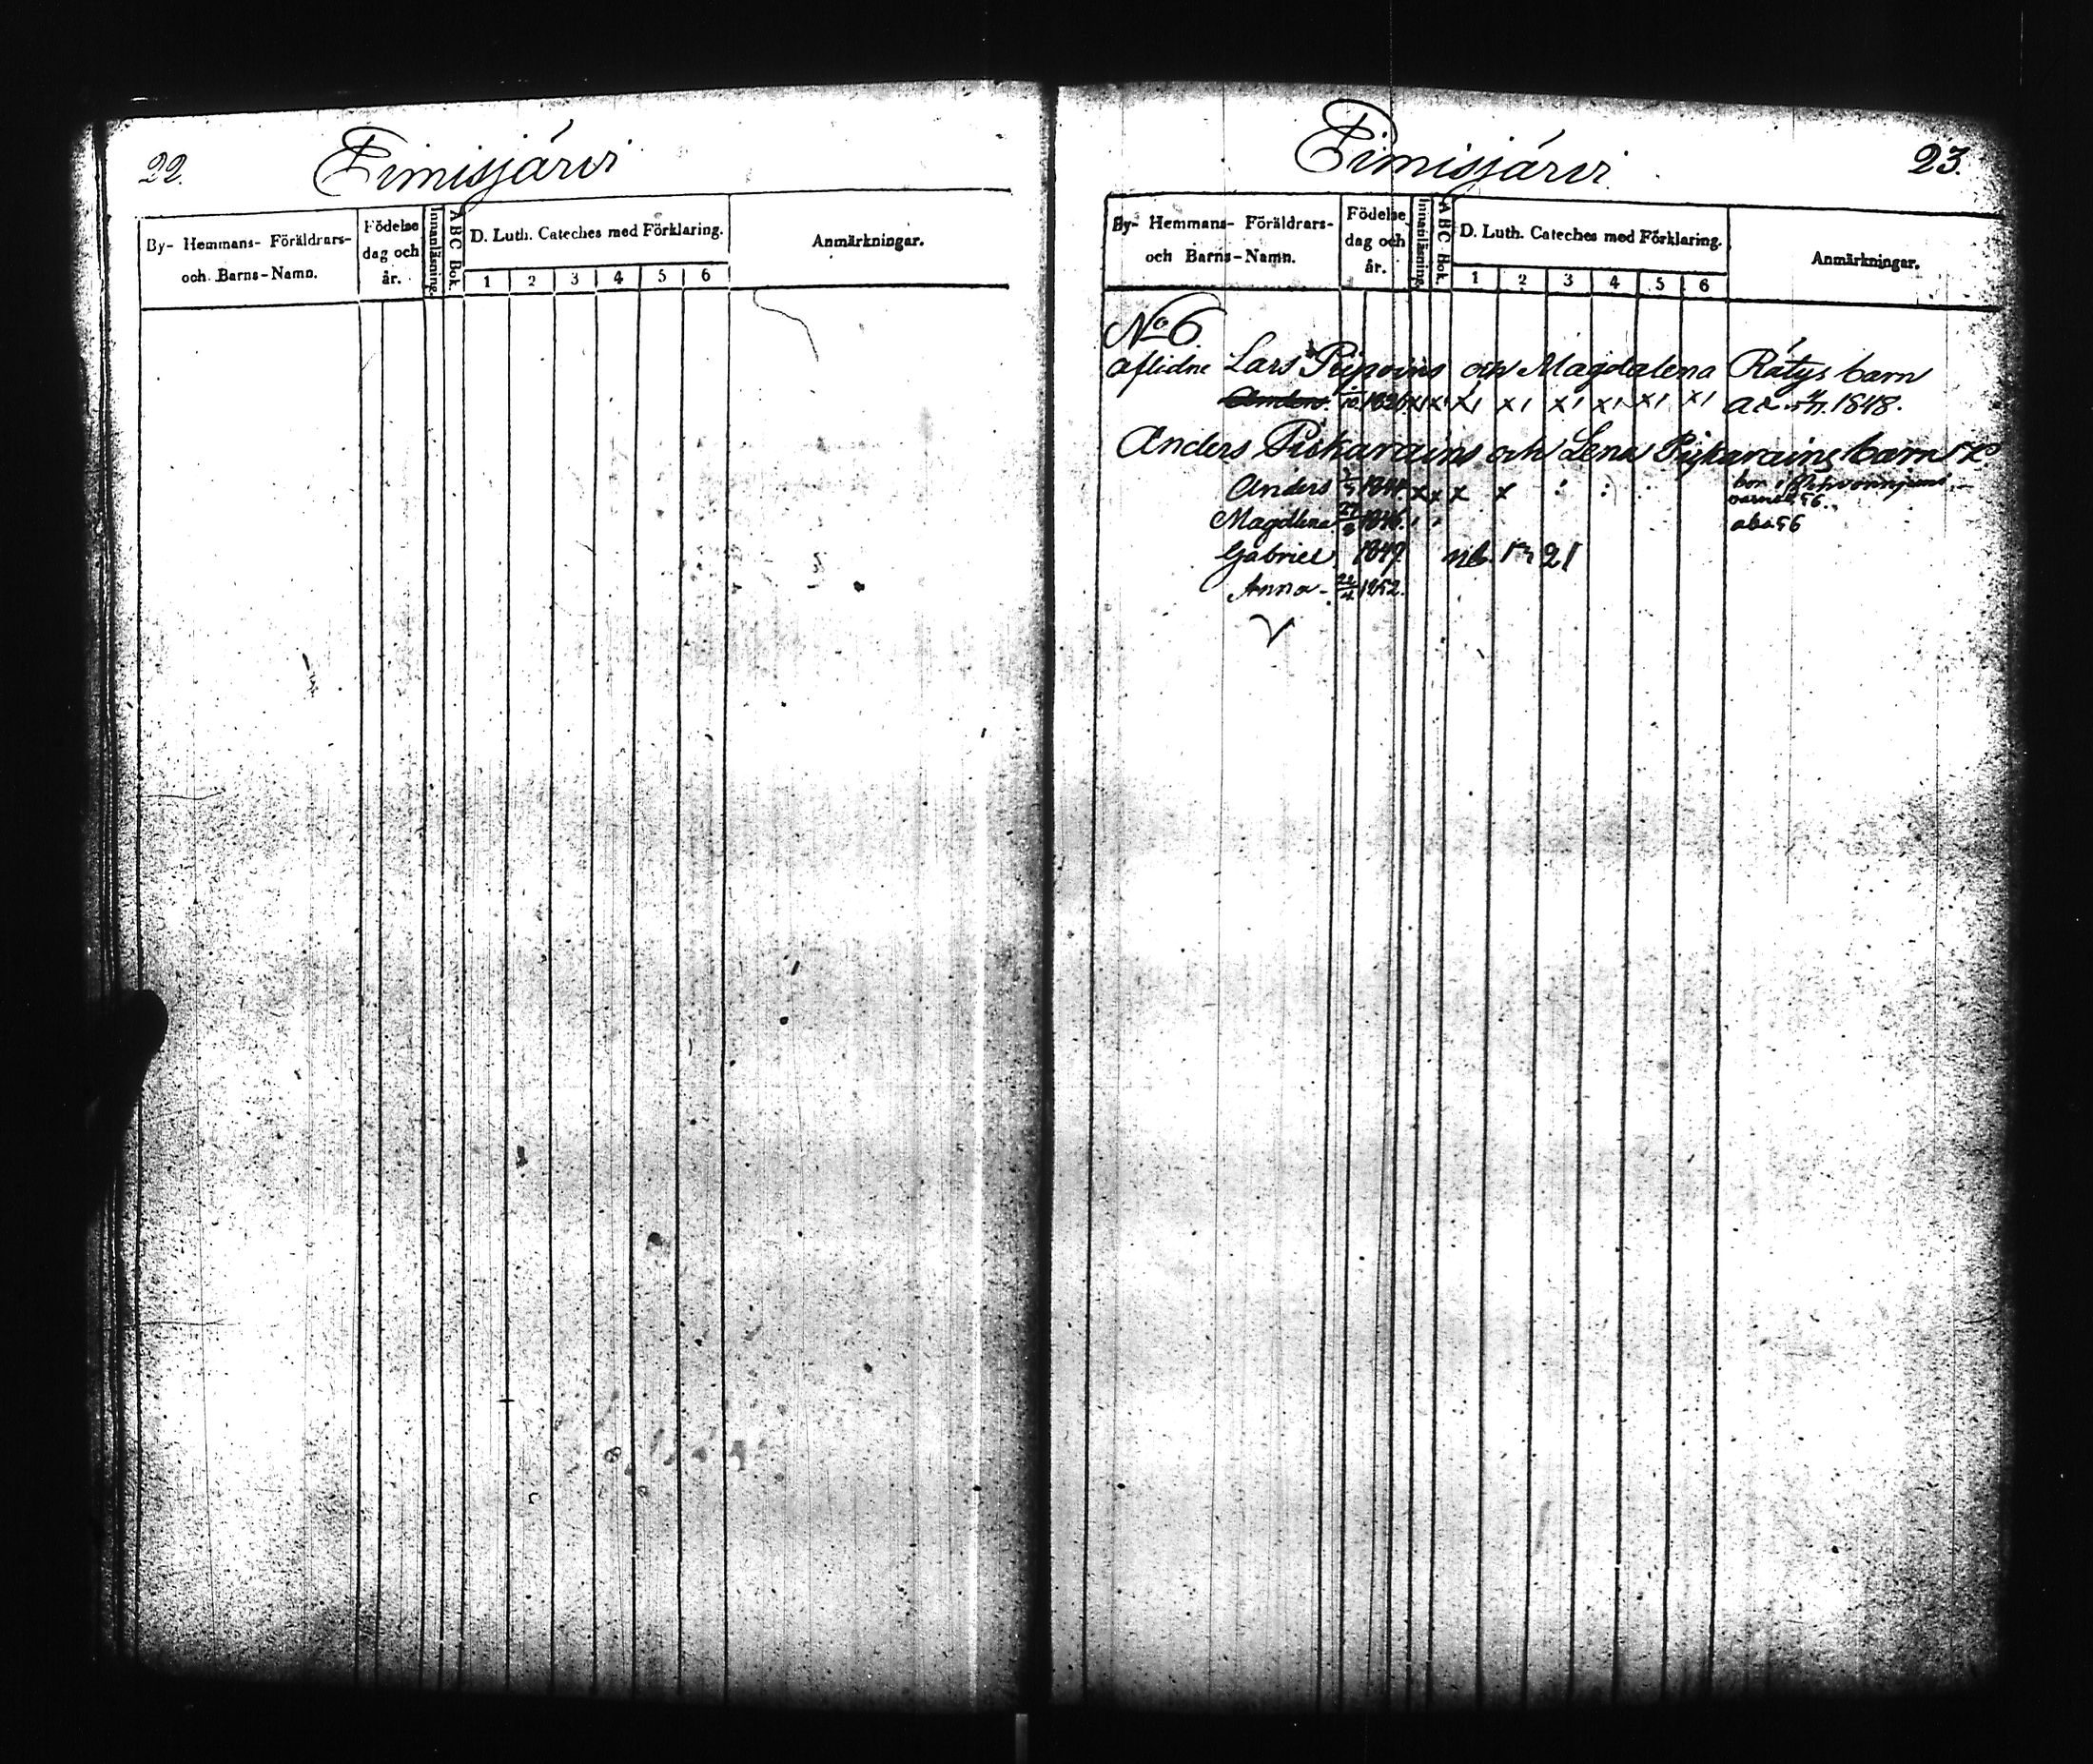 22.
Pimisjärvi
By- Hemmans- Föräldrars-
och Barns-Namn.
Födelse
dag och
år.
Innanläsning.
ABC Bok.
D. Luth. Cateches med Förklaring.
1 2 3 4 5 6
Anmärkningar.
Pimisjärvi
23.
By- Hemmans- Föräldrars-
och Barns-Namn.
Födelse
dag och
år.
Innanläsning.
ABC Bok.
D. Luth. Cateches med Förklaring.
1 2 3 4 5 6
Anmärkningar.
No 6.
aflidne Lars och Magdalena Rätys barn
Anders x x x x x x x x 1848.
Anders Piskarains och Lena Piskarains barn
Anders 1844 x x x x
Magdlena 27 1846 56
Gabriel 1849 21
Anna 22/4 1852.